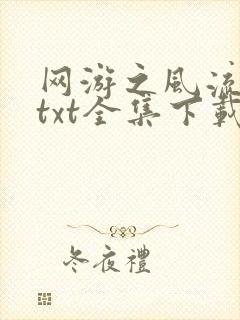 网游之风流
txt全集下載
冬夜禮